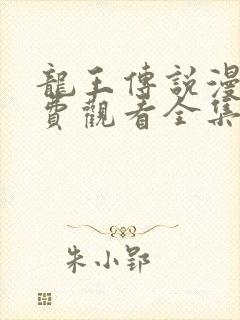 龍王傳說漫
費觀看全集
朱小郢